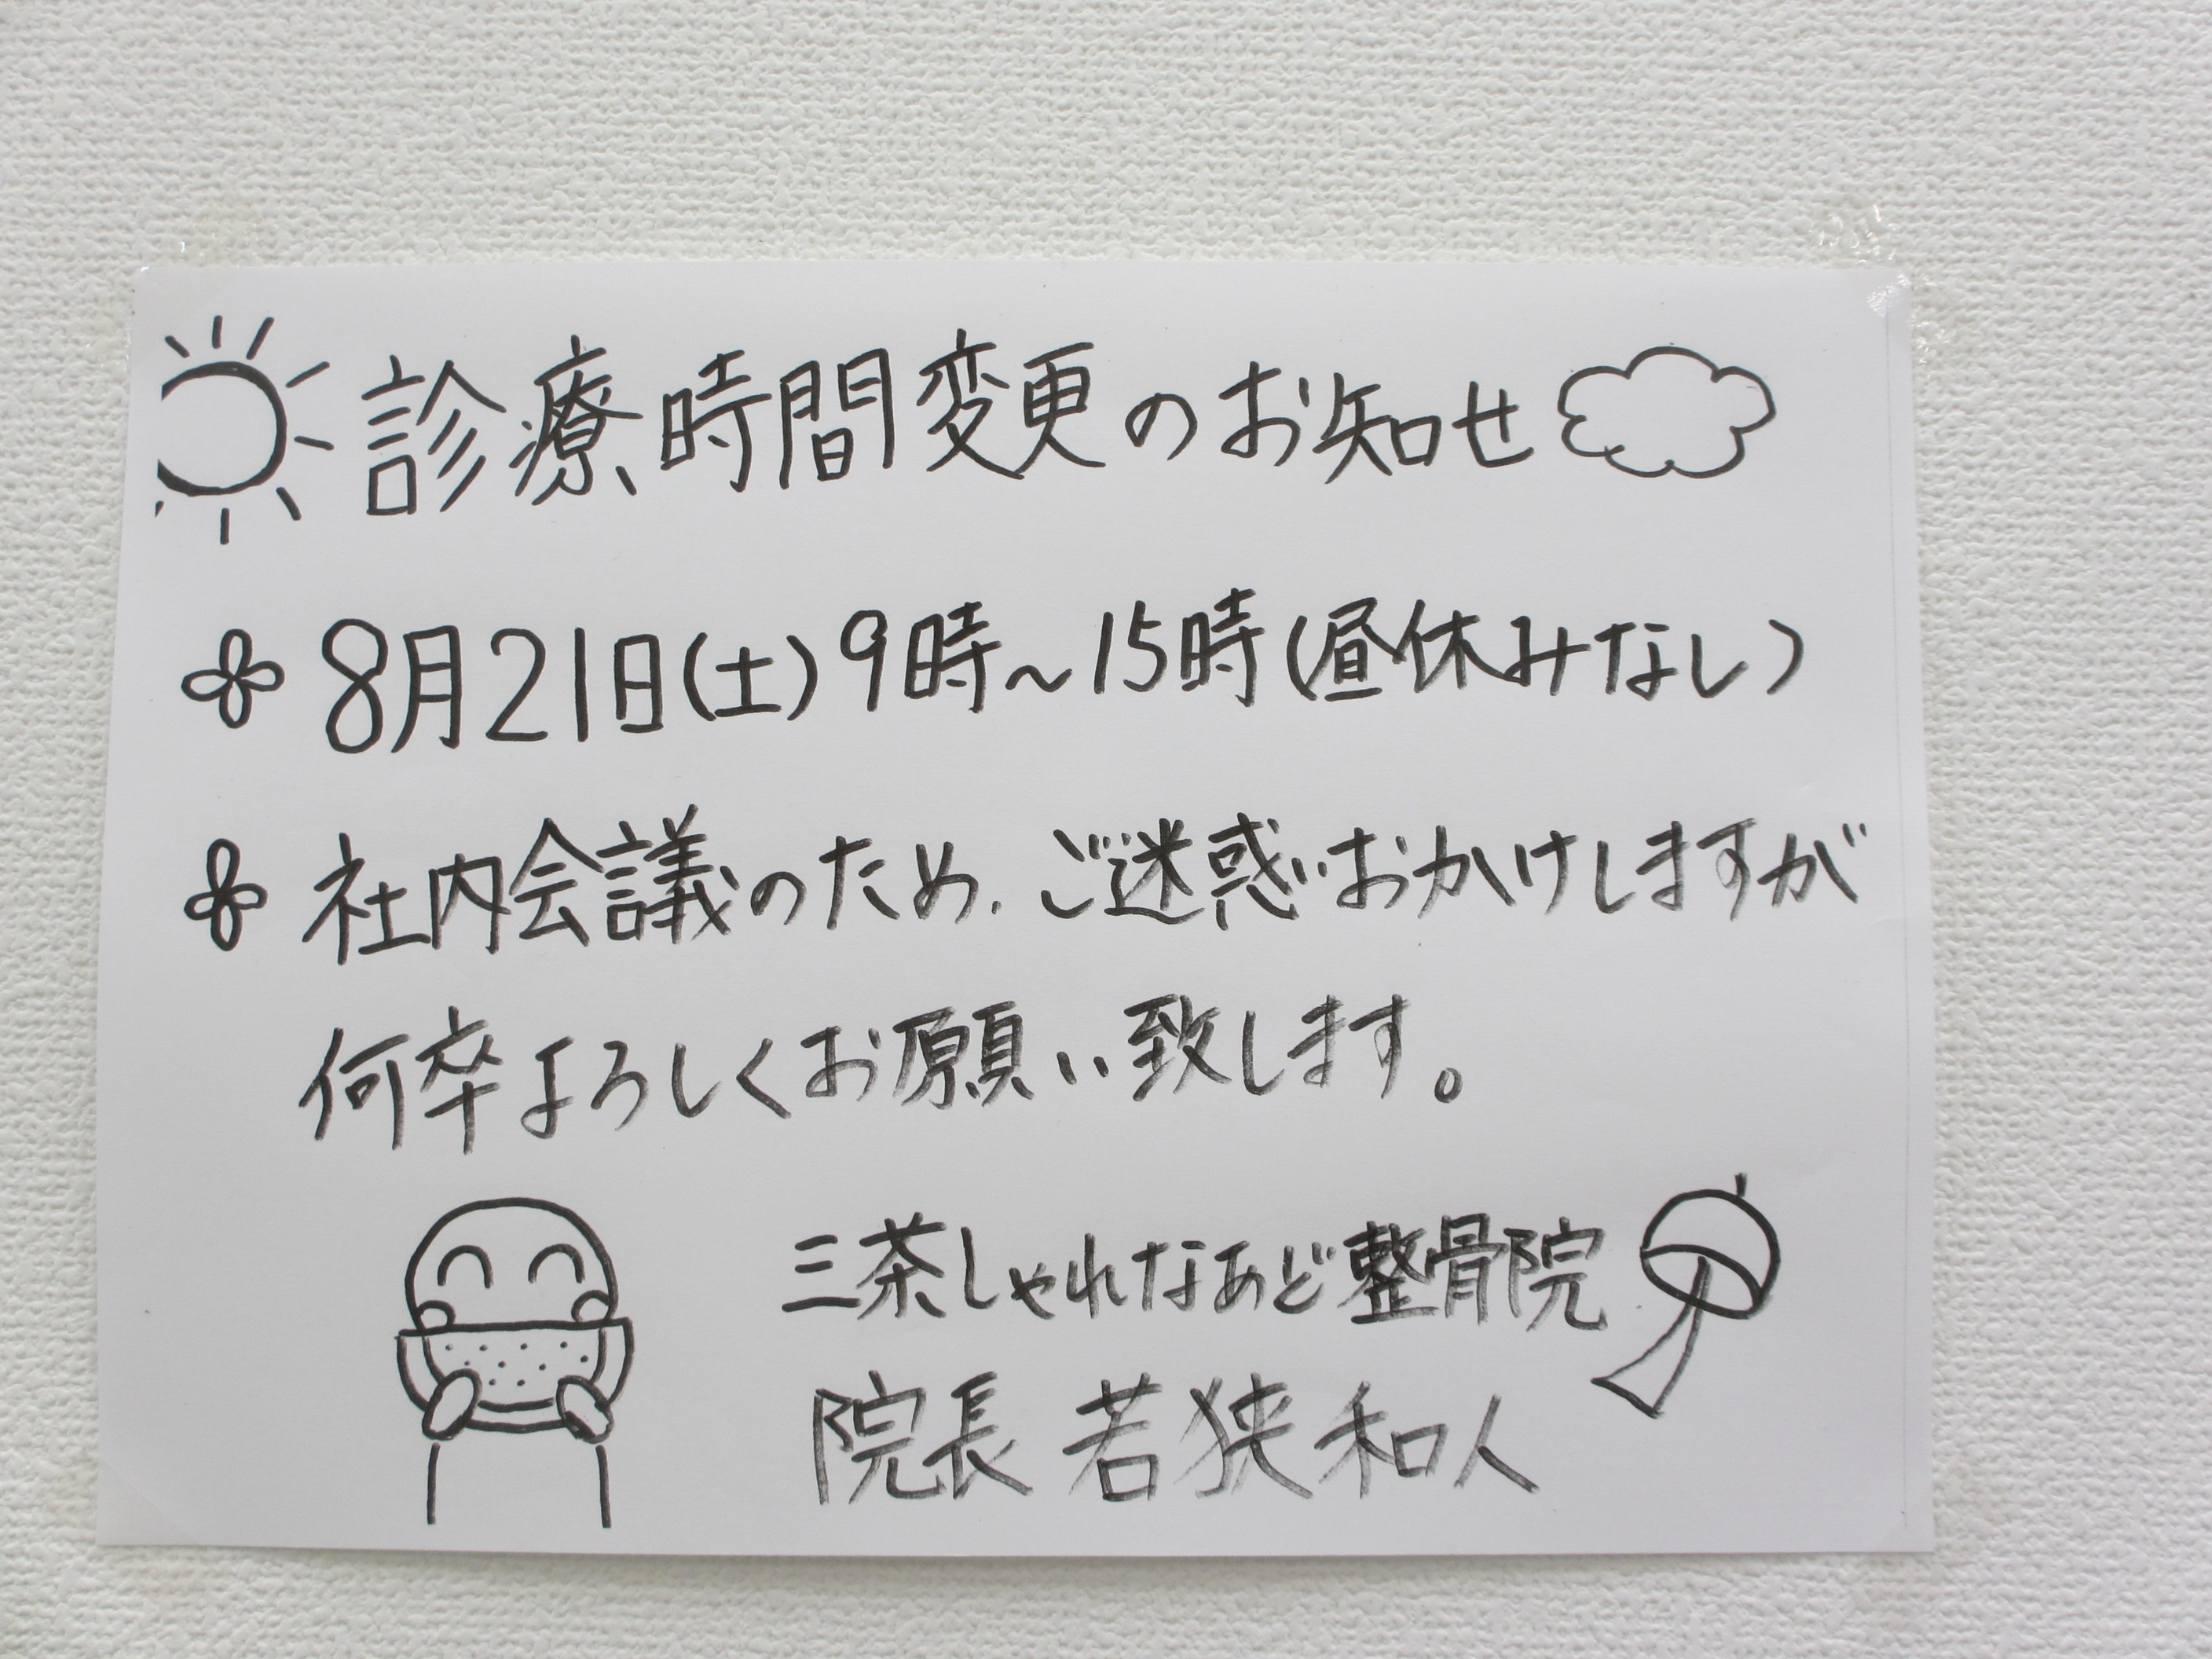 診療時間変更のお知らせ
8月21日(土)9時~15時(昼休みなし)
社内会議のため、ご迷惑おかけしますが
何卒よろしくお願い致します。
三茶しゃれなあど整骨院
院長 若狭和人